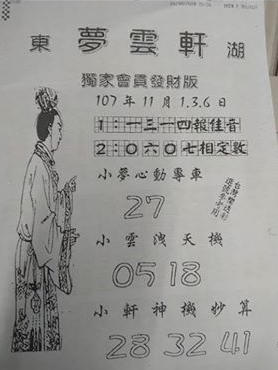 東 夢雲軒 湖
獨家會員發財版
107年11月1.3.6日
1:一三一四報佳音
2:０六０七相定數
小夢心動專車
27
小雲洩天機
05 18
小軒神機妙算
28 32 41